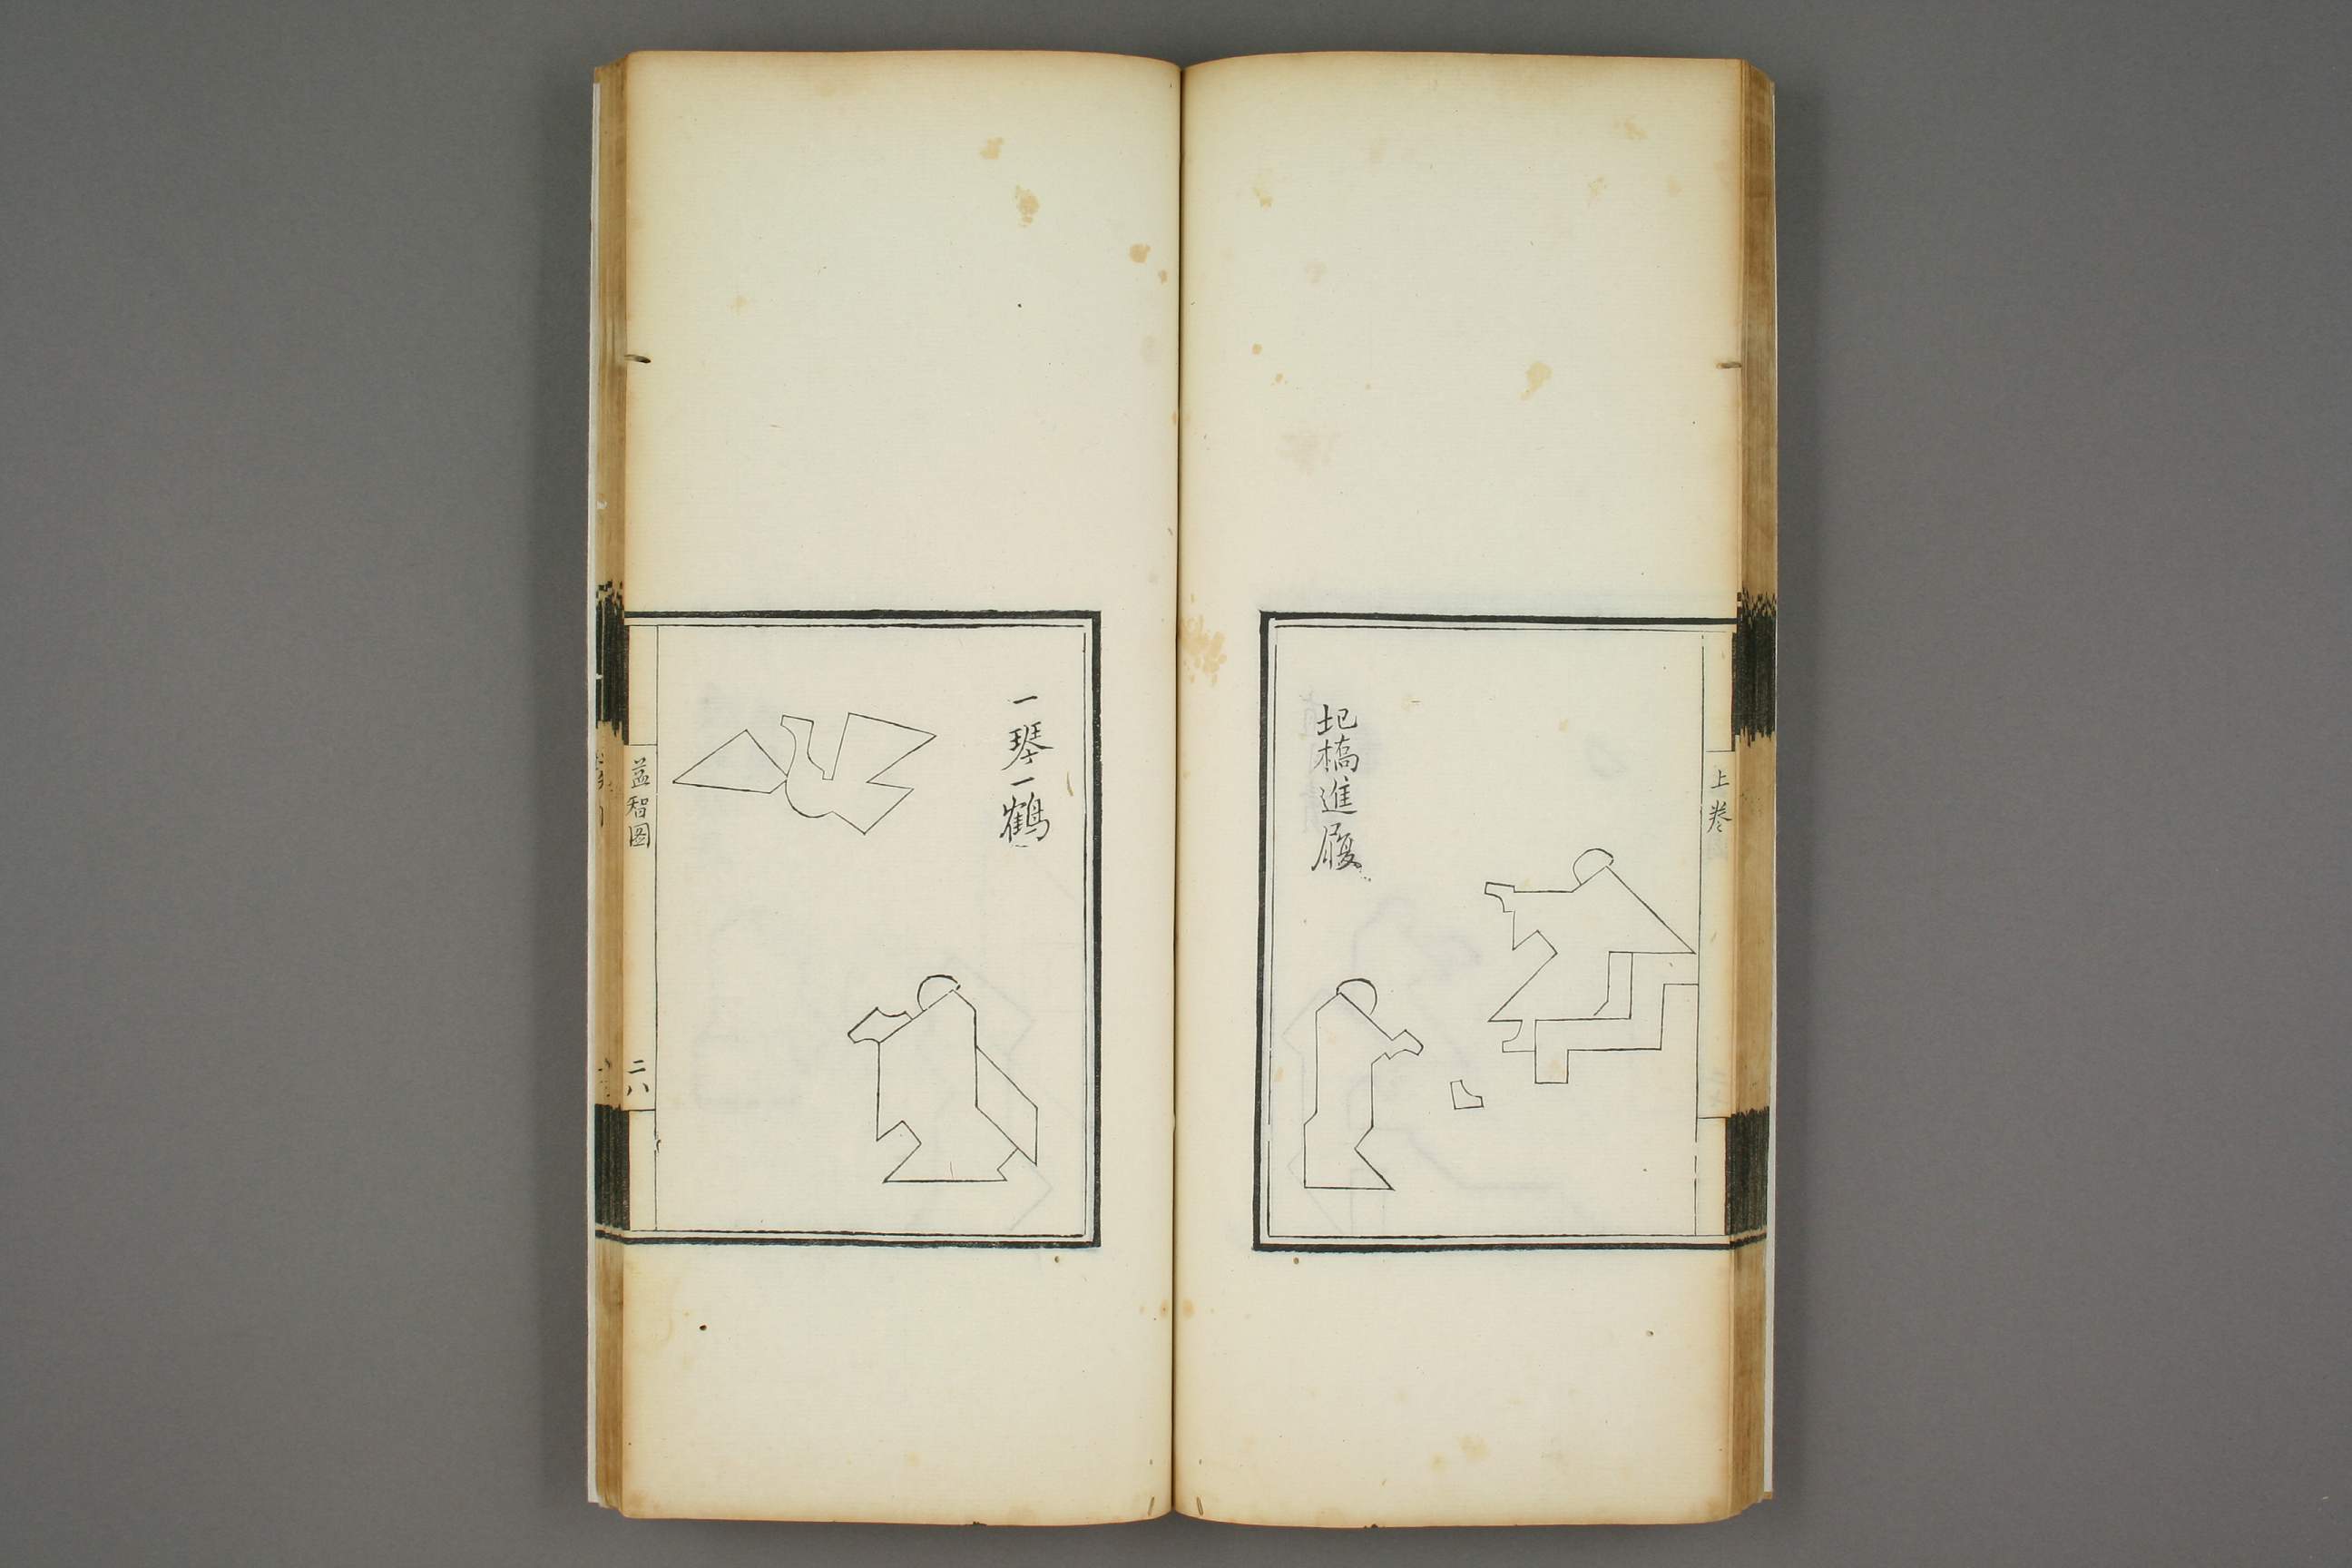 上卷
圯橋進履
一琴一鶴
益智图
二八